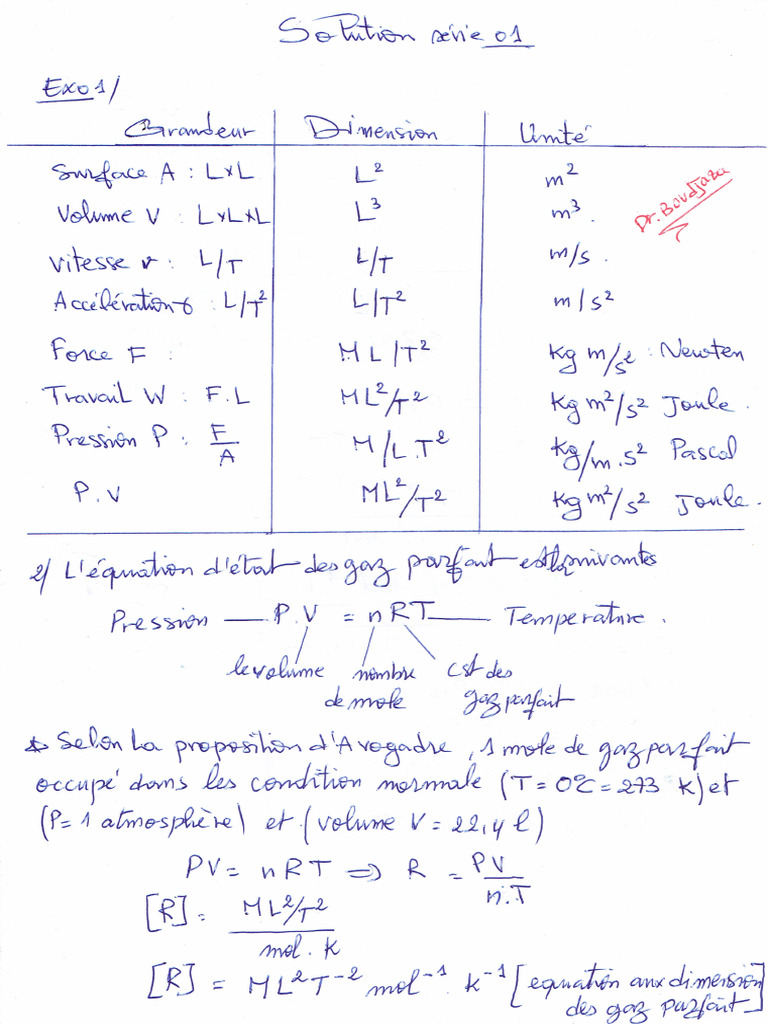 Solution série 01
Exo1/
Grandeur Dimension Unité
Surface A : L×L L² m²
Volume V : L×L×L L³ m³.
Dr. Boudjaza
vitesse v : L/T L/T m/s.
Accélération γ : L/T² L/T² m/s²
Force F : ML/T² Kg m/s² : Newten
Travail W : F.L ML²/T² Kg m²/s² Joule.
Pression P : F/A M/L.T² Kg/m.s² Pascal
P.V ML²/T² Kg m²/s² Joule.
2/ L'équation d'état des gaz parfait est
Pression — P.V = nRT — Temperature.
le volume nombre de mole cst des gaz parfait
Selon la proposition d'Avogadre, 1 mole de gaz parfait
occupé dans les condition normale (T=0°C=273 K) et
(P=1 atmosphère) et (volume V=22,4 l)
PV= nRT ⇒ R = PV/n.T
[R]= ML²/T² / mol.K
[R] = ML²T⁻² mol⁻¹.K⁻¹ [equation aux dimension
des gaz parfait]